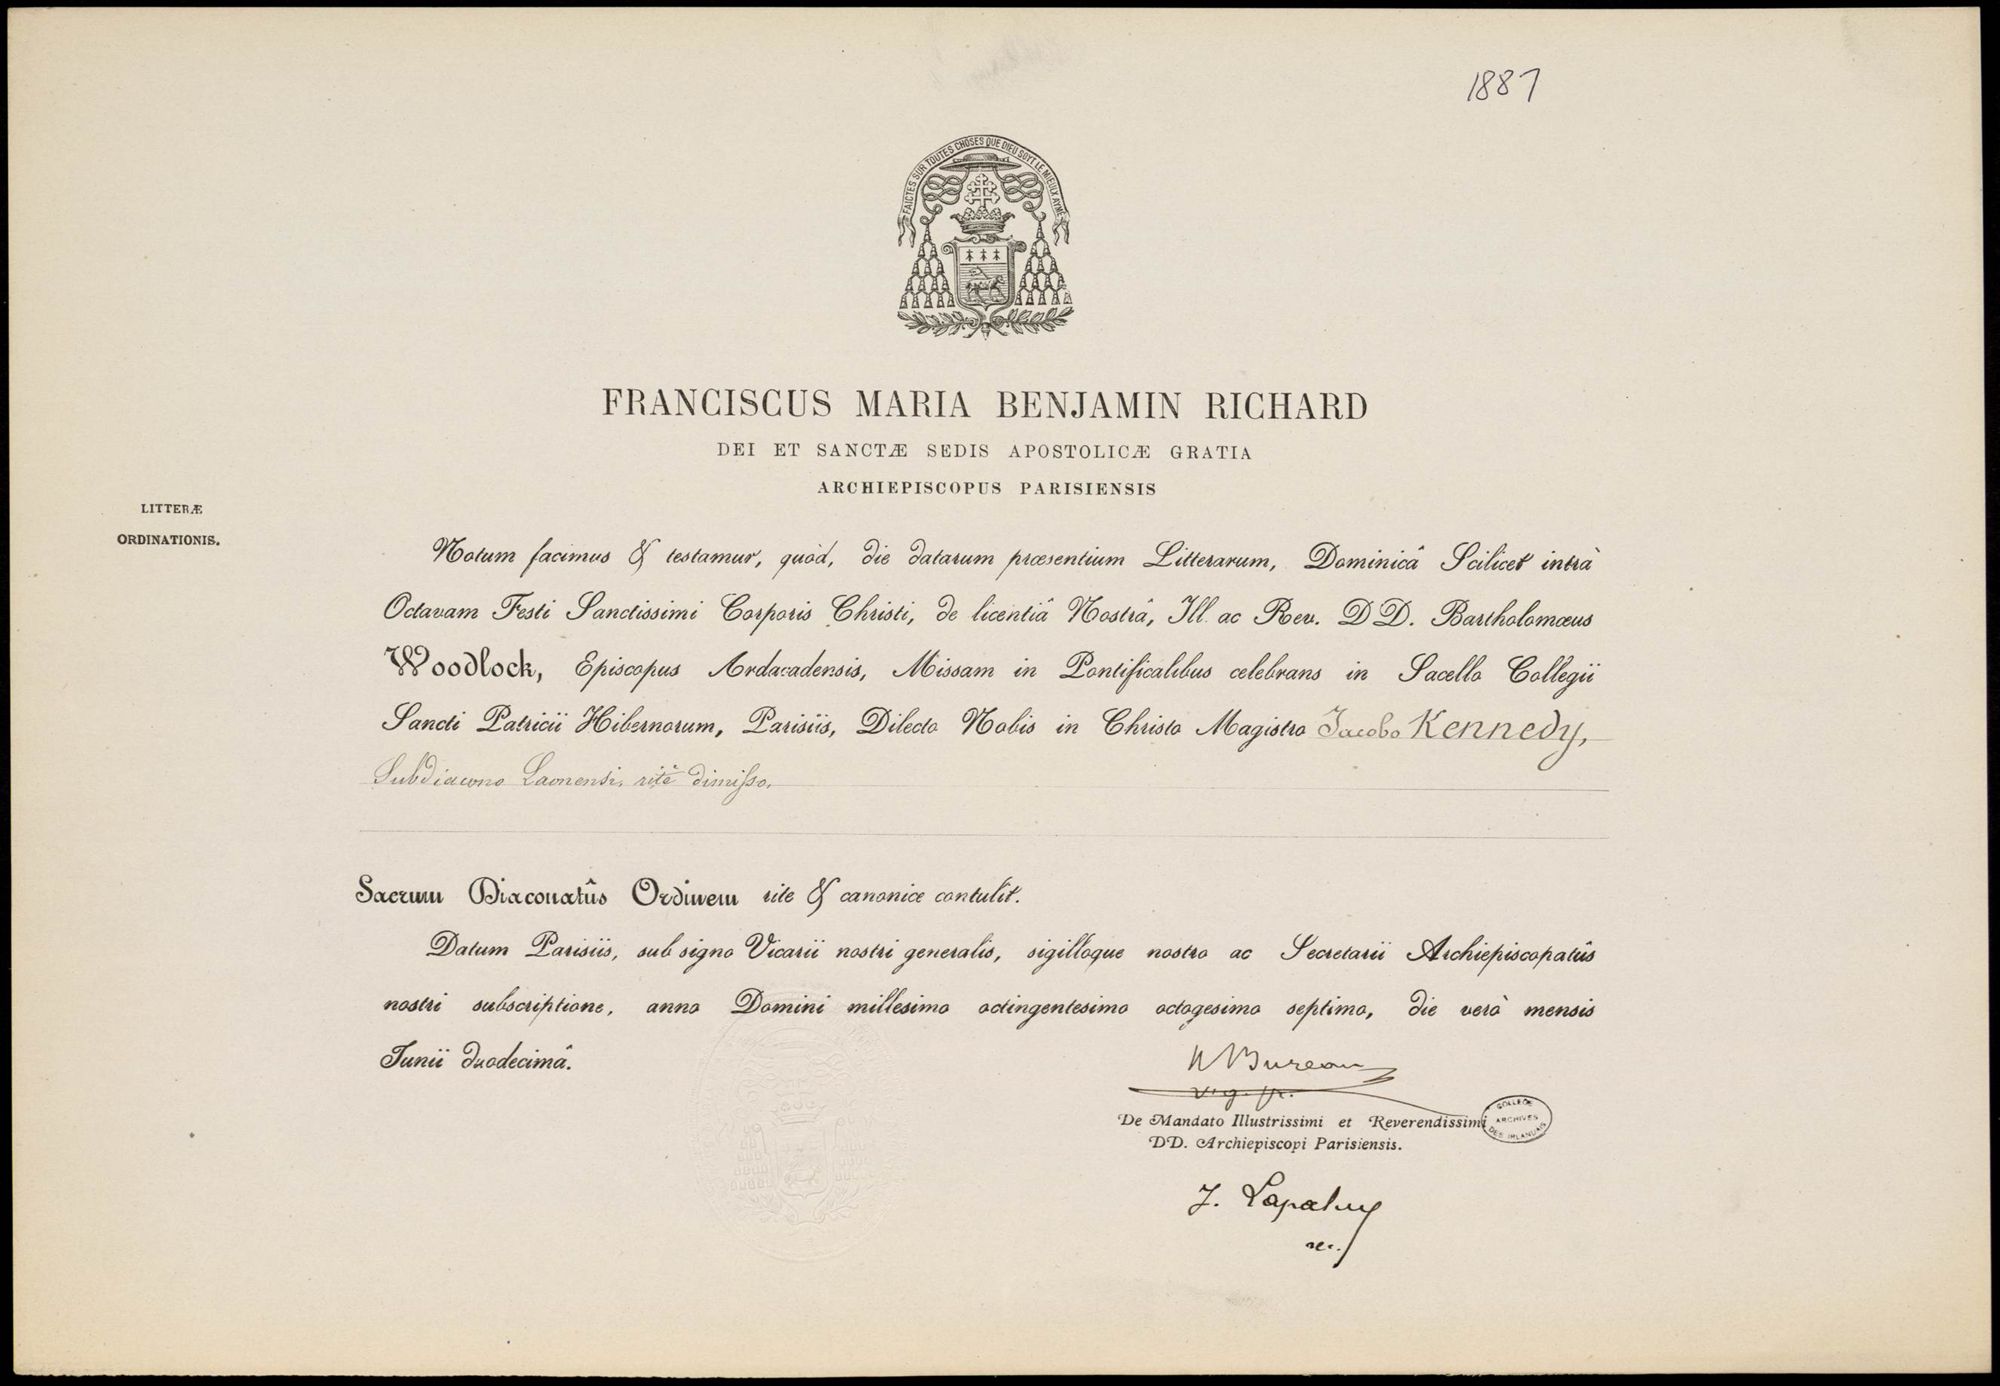 1887
FAICTES SUR TOUTES CHOSES QUE DIEU SOYT LE MIEULX AYMÉ
FRANCISCUS MARIA BENJAMIN RICHARD
DEI ET SANCTÆ SEDIS APOSTOLICÆ GRATIA
ARCHIEPISCOPUS PARISIENSIS
LITTERÆ
ORDINATIONIS.
Notum facimus & testamur, quòd, die datarum præsentium Litterarum, Dominicâ Scilicet intrà
Octavam Festi Sanctissimi Corporis Christi, de licentiâ Nostrâ, Ill. ac Rev. DD. Bartholomæus
Woodlock, Episcopus Ardacadensis, Missam in Pontificalibus celebrans in Sacello Collegii
Sancti Patricii Hibernorum, Parisiis, Dilecto Nobis in Christo Magistro Jacobo Kennedy,
Subdiacono Laonensi, ritè dimisso,
Sacrum Diaconatûs Ordinem rite & canonice contulit.
Datum Parisiis, sub signo Vicarii nostri generalis, sigilloque nostro ac Secretarii Archiepiscopatûs
nostri subscriptione, anno Domini millesimo octingentesimo octogesimo septimo, die verò mensis
Junii duodecimâ.
Bureau
vig. gr.
De Mandato Illustrissimi et Reverendissimi
DD. Archiepiscopi Parisiensis.
COLLEGE
ARCHIVES
DES IRLANDAIS
J. Lapalme
sec.